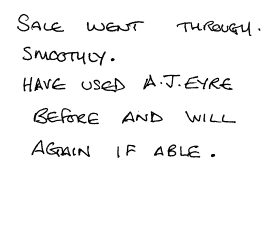 SALE WENT THROUGH.
SMOOTHLY.
HAVE USED A.J.EYRE
BEFORE AND WILL
AGAIN IF ABLE.